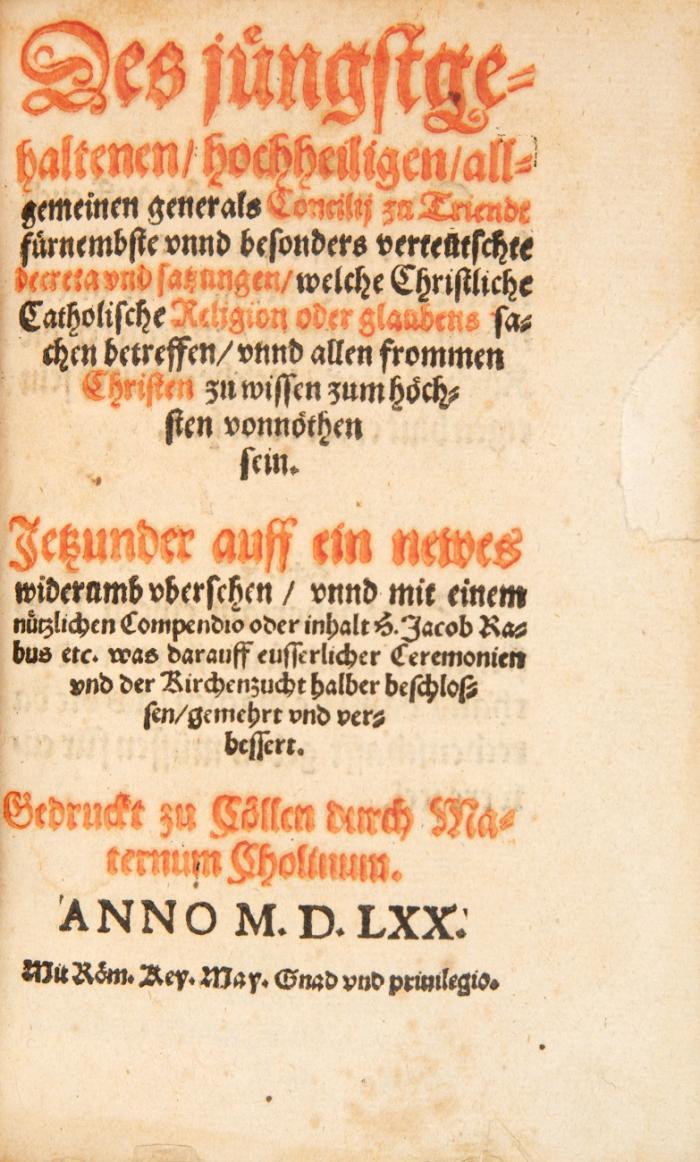 Des jüngstge-
haltenen/ hochheiligen/all-
gemeinen generals Concilij zu Triendt
fürnembste vnnd besonders verteütschte
decreta vnd satzungen/welche Christliche
Catholische Religion oder glaubens sa-
chen betreffen/vnnd allen frommen
Christen zu wissen zum höch-
sten vonnöthen
sein.
Jetzunder auff ein newes
widerumb vbersehen / vnnd mit einem
nützlichen Compendio oder inhalt H. Jacob Ra-
bus etc. was darauff eusserlicher Ceremonien
vnd der Kirchenzucht halber beschlos-
sen/gemehrt vnd ver-
bessert.
Gedruckt zu Cöllen durch Ma-
ternum Cholinum.
ANNO M. D. LXX.
Mit Röm. Key. May. Gnad vnd priuilegio.